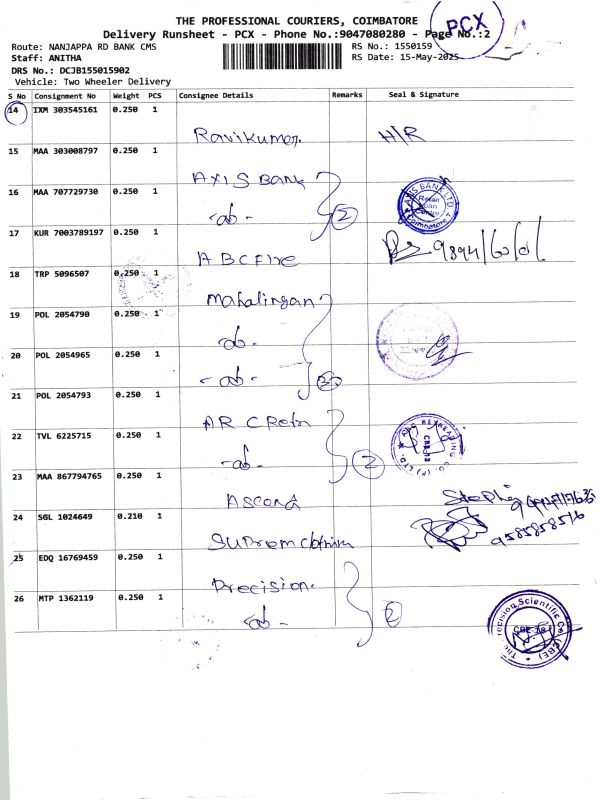 THE PROFESSIONAL COURIERS, COIMBATORE
PCX
Delivery Runsheet - PCX - Phone No.:9047080280 - Page No.:2
Route: NANJAPPA RD BANK CMS
RS No.: 1550159
Staff: ANITHA
RS Date: 15-May-2025
DRS No.: DCJB155015902
Vehicle: Two Wheeler Delivery
S No Consignment No Weight PCS Consignee Details Remarks Seal & Signature
14 IXM 303545161 0.250 1
Ravikumar. H/R
15 MAA 303008797 0.250 1
AXIS BANK
16 MAA 707729730 0.250 1
-do- 2
AXIS BANK LTD
Retail
Coimbatore
17 KUR 7003789197 0.250 1
ABC Fire
18 TRP 5096507 0.250 1
Mahalingan
19 POL 2054790 0.250 1
-do-
20 POL 2054965 0.250 1
-do-
21 POL 2054793 0.250 1
22 TVL 6225715 0.250 1
-do- 2
23 MAA 867794765 0.250 1
24 SGL 1024649 0.210 1
9585858516
25 EDQ 16769459 0.250 1
Precision.
26 MTP 1362119 0.250 1
-do- 2
The Precision Scientific Co (CBE)